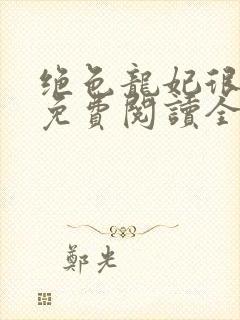 绝色龍妃很
免費閱讀全
鄭光